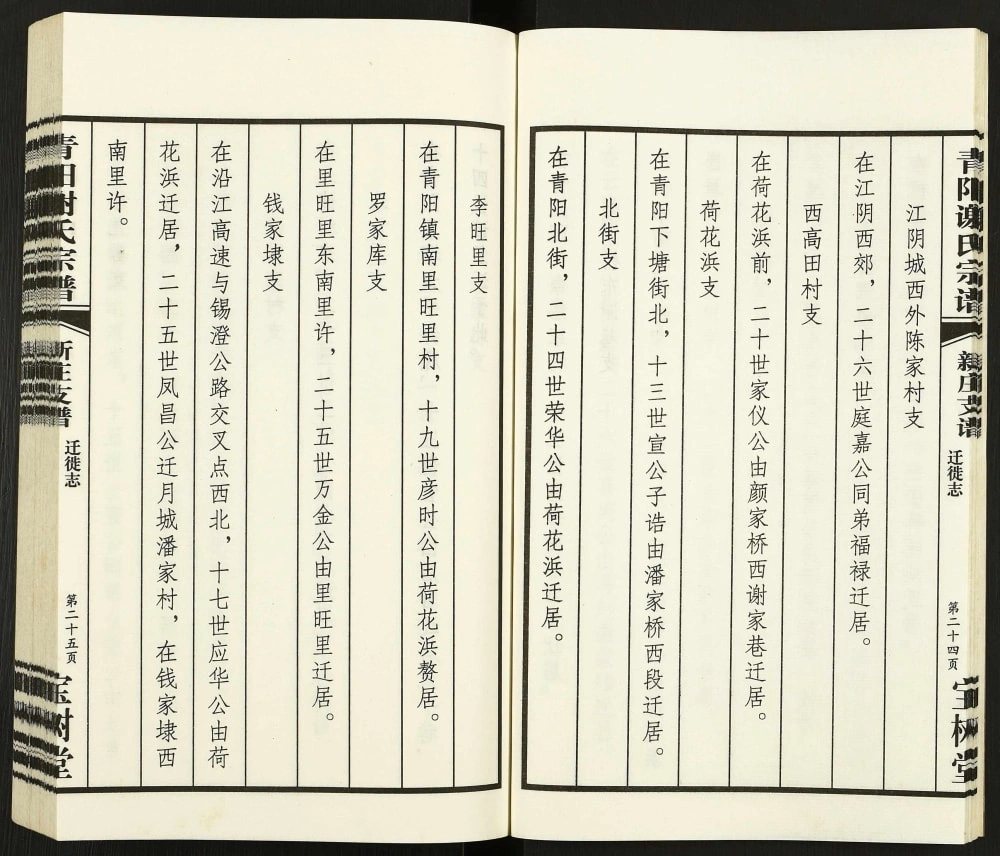 青阳谢氏宗谱
新庄支谱
迁徙志
第二十四页
宝树堂
江阴城西外陈家村支
在江阴西郊，二十六世庭嘉公同弟福禄迁居。
西高田村支
在荷花浜前，二十世家仪公由颜家桥西谢家巷迁居。
荷花浜支
在青阳下塘街北，十三世宣公子诰由潘家桥西段迁居。
北街支
在青阳北街，二十四世荣华公由荷花浜迁居。
李旺里支
在青阳镇南里旺里村，十九世彦时公由荷花浜赘居。
罗家库支
在里旺里东南里许，二十五世万金公由里旺里迁居。
钱家埭支
在沿江高速与锡澄公路交叉点西北，十七世应华公由荷
花浜迁居，二十五世凤昌公迁月城潘家村，在钱家埭西
南里许。
青阳谢氏宗谱
新庄支谱
迁徙志
第二十五页
宝树堂